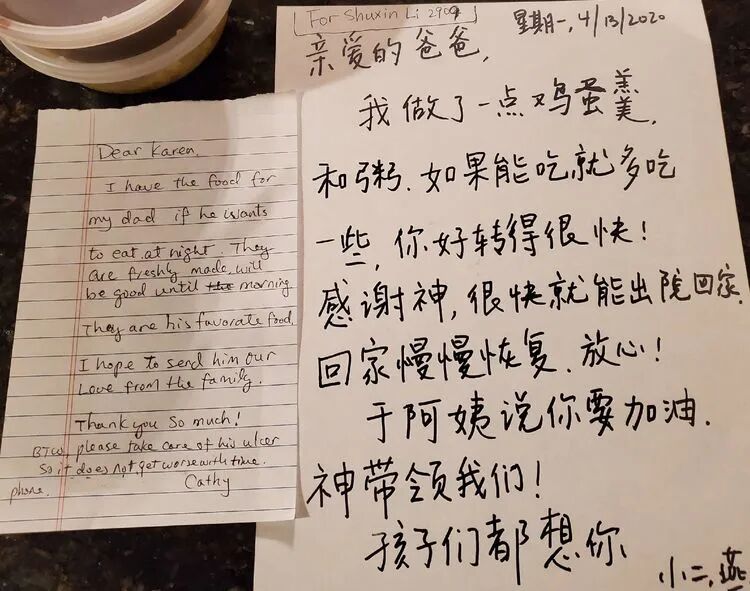 Dear Karen,
I have the food for
my dad if he wants
to eat at night. They
are freshly made, will
be good until the morning
They are his favorate food.
I hope to send him our
Love from the family.
Thank you so much!
BTW, please take care of his ulcer
So it does not get worse with time.
phone.
Cathy
For Shuxin Li 2909
星期一, 4/13/2020
亲爱的爸爸,
我做了一点鸡蛋羹,
和粥. 如果能吃就多吃
一些, 你好转得很快!
感谢神, 很快就能出院回家.
回家慢慢恢复. 放心!
于阿姨说你要加油.
神带领我们!
孩子们都想你
小二, 燕